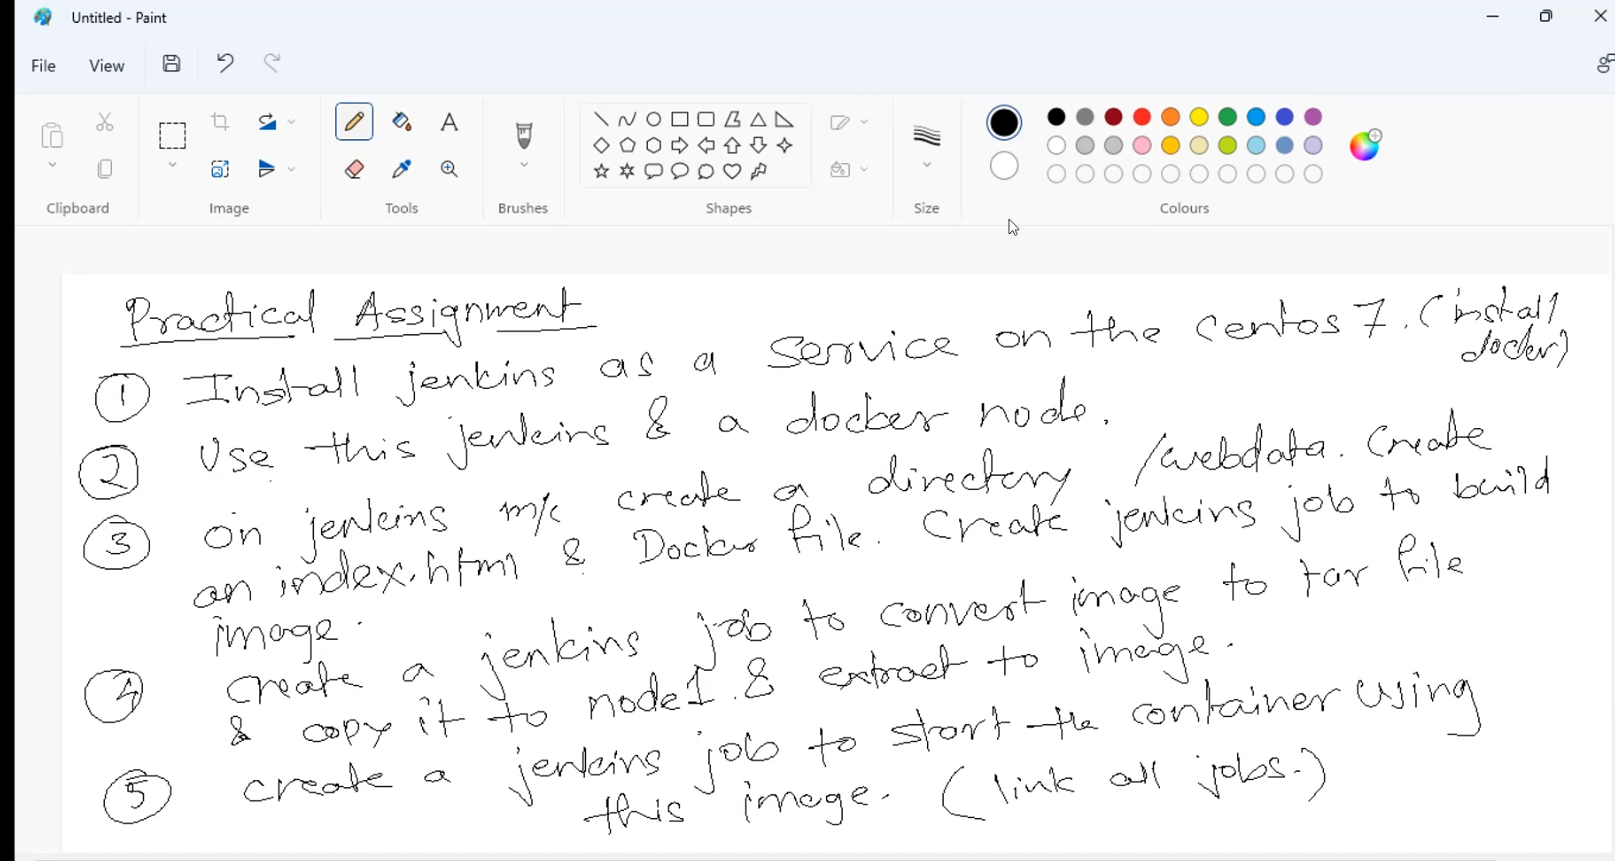 Untitled - Paint
File View
Clipboard Image Tools Brushes Shapes Size Colours
Practical Assignment
① Install jenkins as a service on the Centos 7. (install docker)
② Use this jenkins & a docker node.
③ on jenkins m/c create a directory /webdata. Create
an index.html & Docker file. Create jenkins job to build
image.
④ create a jenkins job to convert image to tar file
& copy it to node1. & extract to image.
⑤ create a jenkins job to start the container using
this image. (link all jobs.)